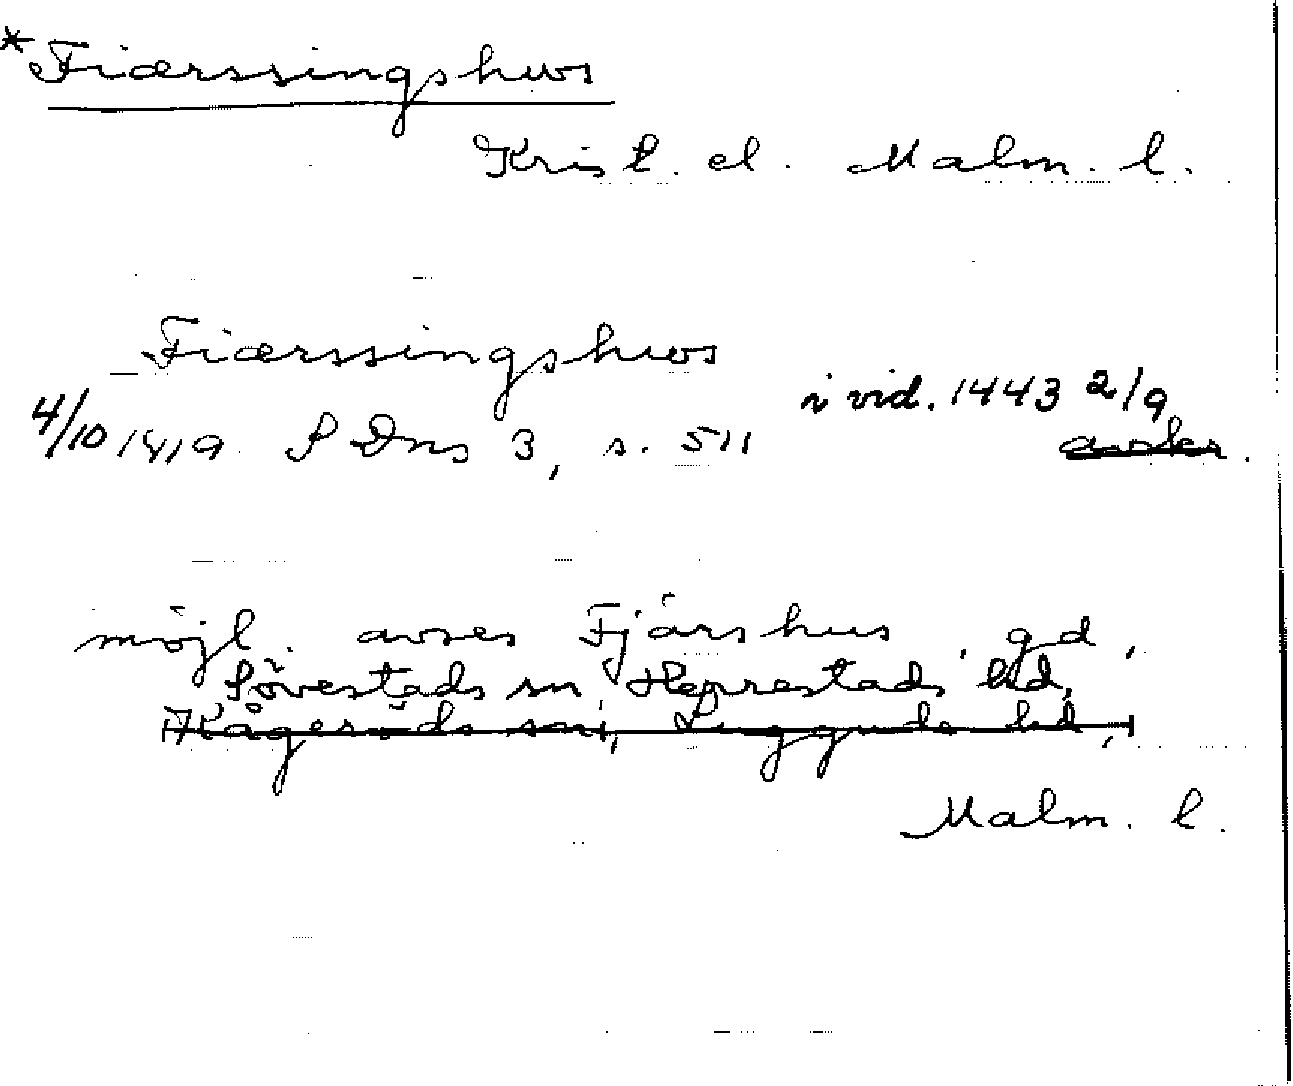 *Fiærssingshws
Krist. el. Malm. l.
Fiærssingshws
i vid. 1443 2/9
4/10 1419 S Dns 3, s. 511 avskr.
möjl. avses Fjärshus, gd,
Sövestads sn, Herrestads hd,
Kågeröds sn, Luggude hd,
Malm. l.